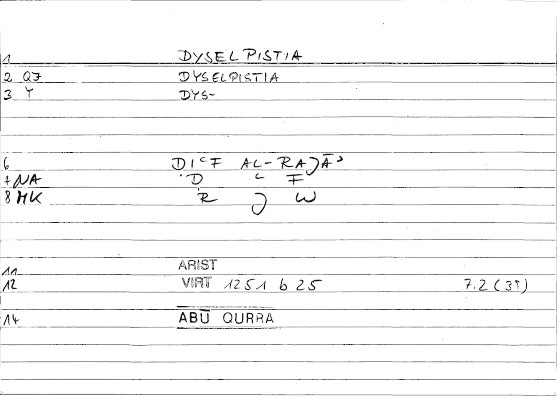 1 DYSELPISTIA
2 QJ DYSELPISTIA
3 Y DYS-
6 DIʿF AL-RAJĀʾ
7 NA D ʿ F
8 MK R J W
11 ARIST
12 VIRT 1251 b 25 7.2 (31)
14 ABŪ QURRA